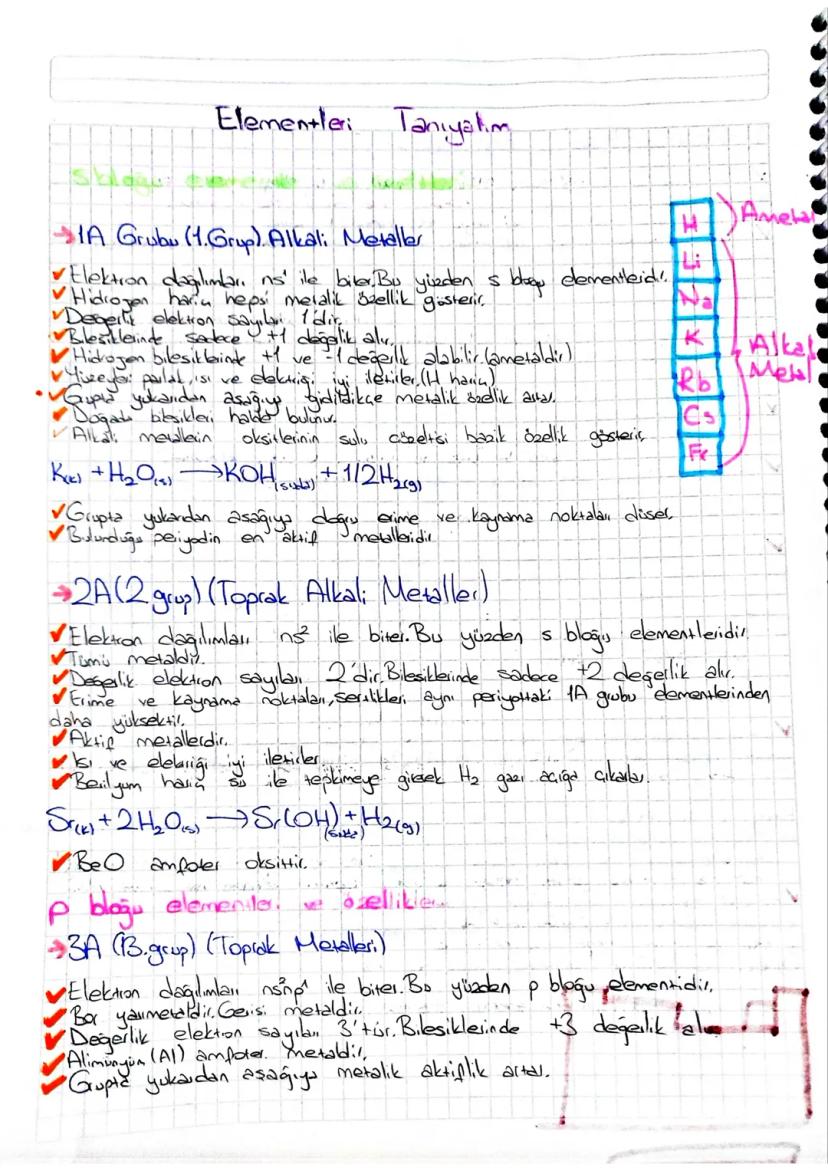 Elementleri Tanıyalım
s bloğu
→1A Grubu (1.Grup). Alkali Metaller
H
Li
Na
K
Rb
Cs
Fr
Ametal
Alkali Metal
✓Elektron dağılımları ns¹ ile biter. Bu yüzden s bloğu elementleridir.
✓Hidrojen hariç hepsi metalik özellik gösterir.
✓Değerlik elektron sayıları 1'dir.
✓Bileşiklerinde sadece +1 değerlik alır.
✓Hidrojen bileşiklerinde +1 ve -1 değerlik alabilir. (ametaldir)
✓Yüzeyleri parlak, ısı ve elektriği iyi iletirler. (H hariç)
✓Grupta yukarıdan aşağıya gidildikçe metalik özellik artar.
✓Doğada bileşikleri halde bulunur.
✓Alkali metallerin oksitlerinin sulu çözeltisi bazik özellik gösterir.
K(k) + H₂O(s) → KOH(suda) + 1/2H₂(g)
✓Grupta yukarıdan aşağıya doğru erime ve kaynama noktaları düşer.
✓Bulunduğu periyodin en aktif metalleridir.
→2A(2 grup) (Toprak Alkali Metaller)
✓Elektron dağılımları ns² ile biter. Bu yüzden s bloğu elementleridir.
✓Tümü metaldir.
✓Değerlik elektron sayıları 2'dir. Bileşiklerinde sadece +2 değerlik alır.
✓Erime ve kaynama noktaları, sertlikleri aynı periyottaki 1A grubu elementlerinden
daha yüksektir.
✓Aktif metallerdir.
✓Isı ve elektriği iyi iletirler.
✓Berilyum hariç su ile tepkimeye girerek H₂ gazı açığa çıkarlar.
Sr(k) + 2H₂O(s) → Sr(OH)₂(suda) + H₂(g)
✓BeO amfoter oksittir.
p bloğu elementleri ve özellikleri
→3A (13.grup) (Toprak Metalleri)
✓Elektron dağılımları ns²np¹ ile biter. Bu yüzden p bloğu elementidir.
✓Bor yarımetaldir. Gerisi metaldir.
✓Değerlik elektron sayıları 3'tür. Bileşiklerinde +3 değerlik alır
✓Alimünyum (Al) amfoter metaldir.
✓Grupta yukarıdan aşağıya metalik aktiflik artar.